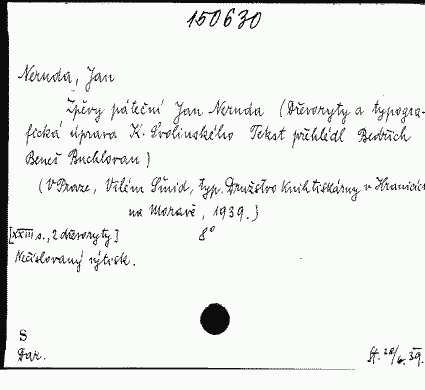 150630
Neruda, Jan
Zpěvy páteční Jan Neruda (Dřevoryty a typogra-
fická úprava K. Svolinského Tekst přihlédl Bedřich
Beneš Buchlovan)
(V Praze, Vilém Šmid, typ. Družstvo Knihtiskárny v Hranicích
na Moravě, 1939.)
[XXIII s., 2 dřevoryty] 8°
Nečíslovaný výtisk.
S
Dar.
St. 20/6. 39.